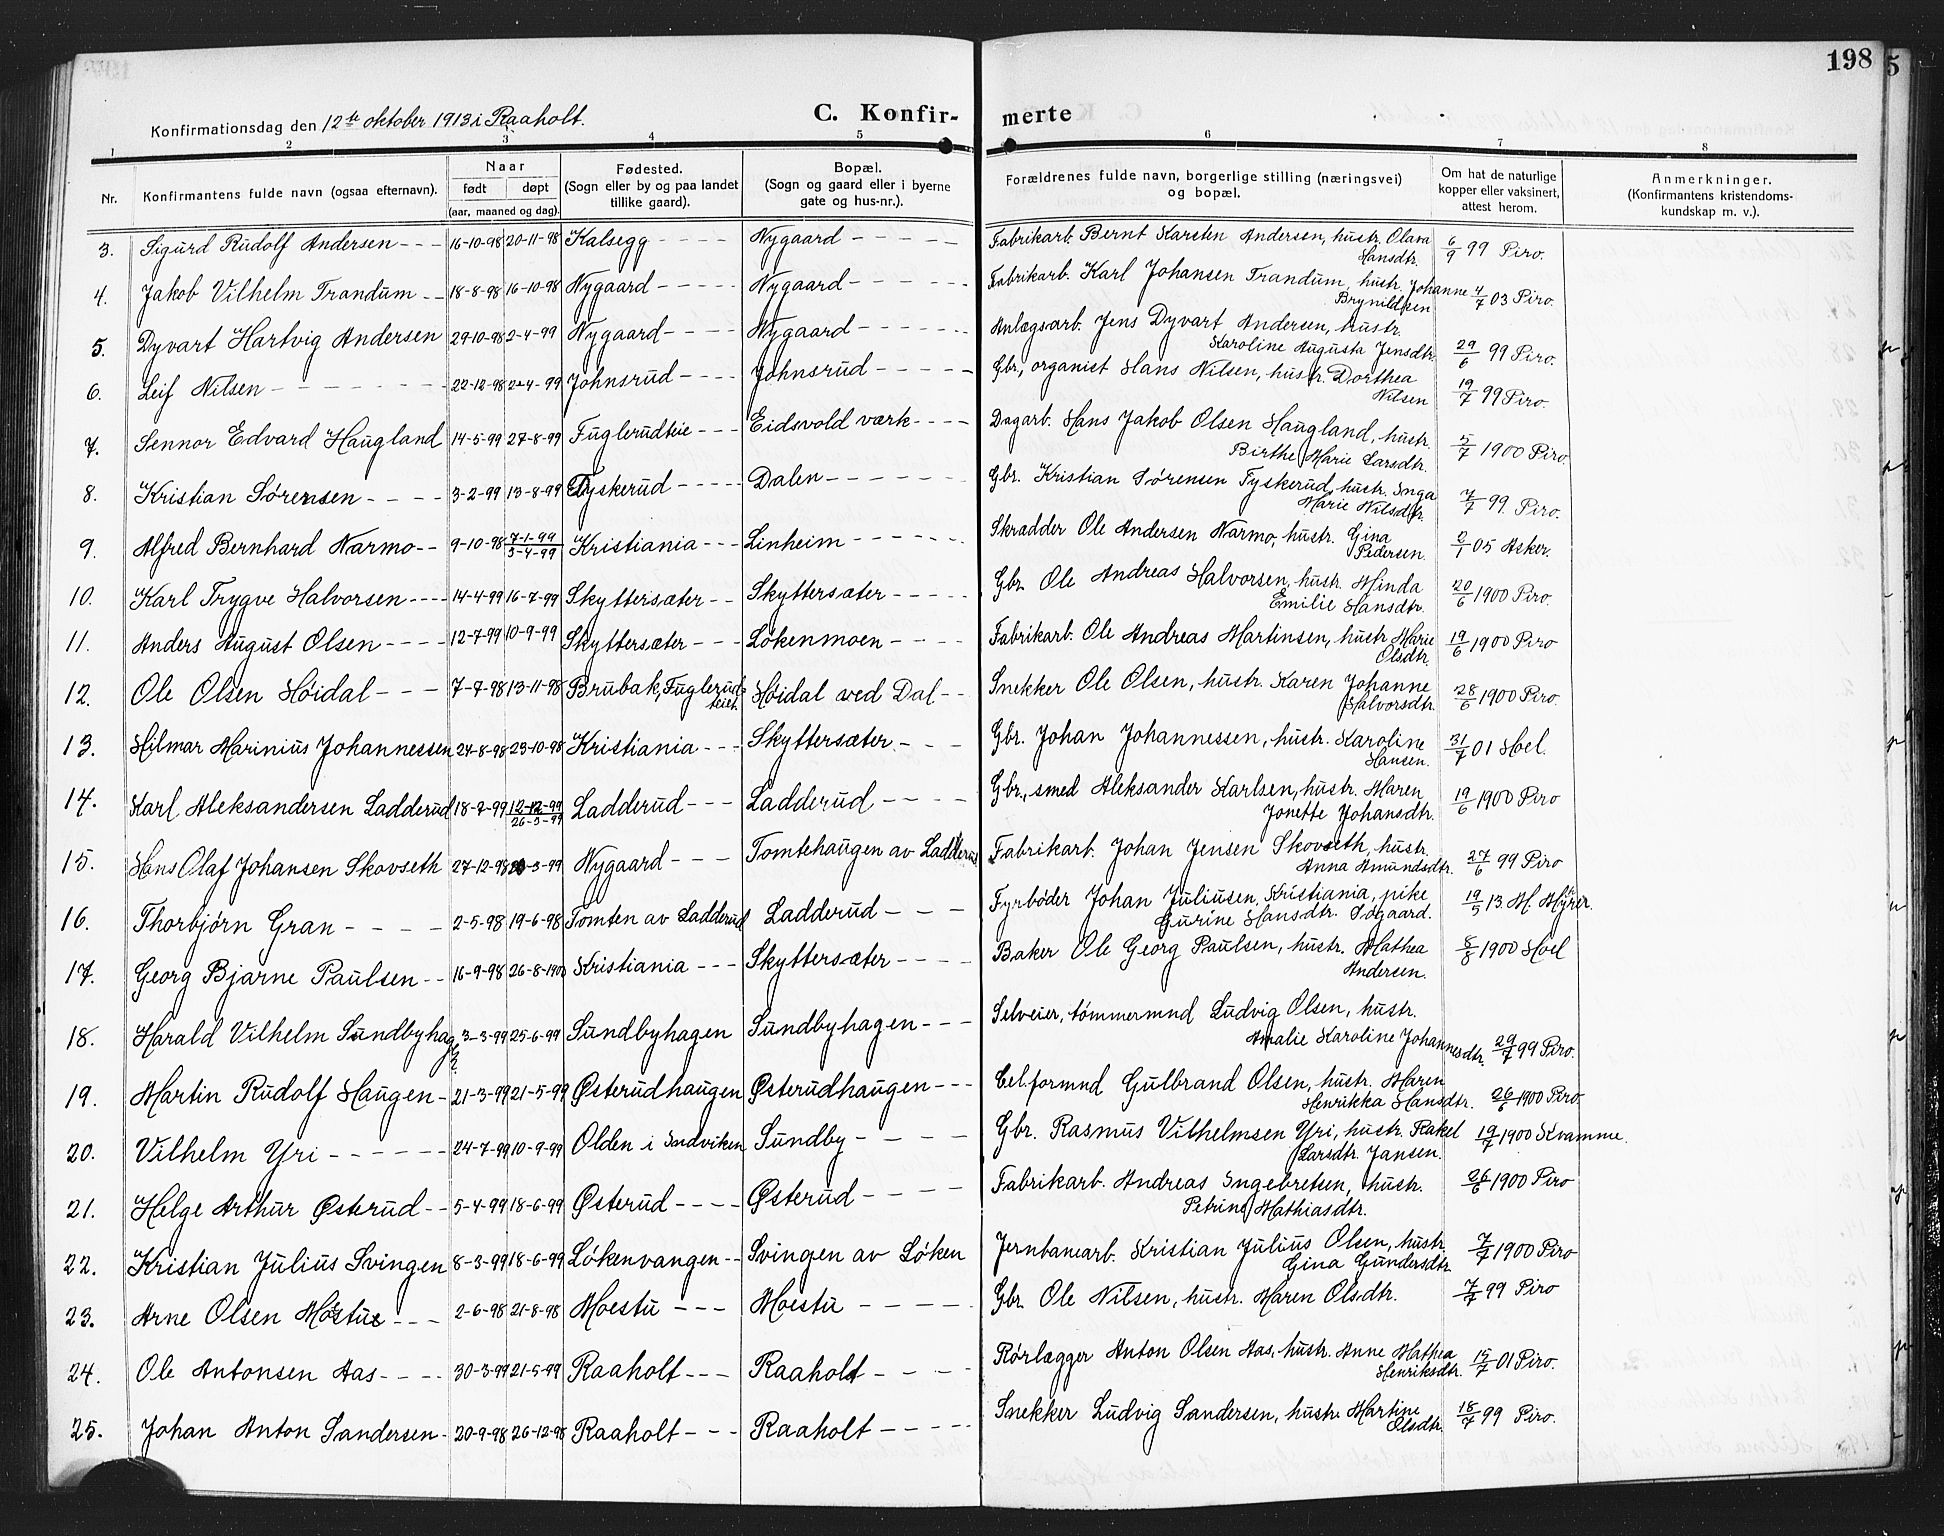 198
5
Konfirmationsdag den 12te oktober 1913 i Raaholt.
C. Konfir-
merte
1 2 3 4 5 6 7 8
Nr. Konfirmantens fulde navn (ogsaa efternavn). Naar født døpt (aar, maaned og dag). Fødested. (Sogn eller by og paa landet tillike gaard). Bopæl. (Sogn og gaard eller i byerne gate og hus-nr.). Forældrenes fulde navn, borgerlige stilling (næringsvei) og bopæl. Om hat de naturlige kopper eller vaksinert, attest herom. Anmerkninger. (Konfirmantens kristendoms-kundskap m. v.).
3. Sigurd Rudolf Andersen 16-10-98 20-11-98 Kalsegg Nygaard Fabrikarb. Bernt Karsten Andersen, hustr. Olava Hansdtr. 6/9 99 Piro.
4. Jakob Vilhelm Trandum 18-8-98 16-10-98 Nygaard Nygaard Fabrikarb. Karl Johansen Trandum, hustr. Johanne Brynildsen 4/7 03 Piro.
5. Dyvart Hartvig Andersen 29-10-98 2-4-99 Nygaard Nygaard Anlægsarb. Jens Dyvart Andersen, hustr. Karoline Augusta Jensdtr. 29/6 99 Piro.
6. Leif Nilsen 22-12-98 2-4-99 Johnsrud Johnsrud Gbr., organist Hans Nilsen, hustr. Dorthea Nilsen 19/7 99 Piro.
7. Sennor Edvard Haugland 14-5-99 27-8-99 Fuglerudteie Eidsvold værk Dagarb. Hans Jakob Olsen Haugland, hustr. Birthe Marie Larsdtr. 5/7 1900 Piro.
8. Kristian Sørensen 3-2-99 13-8-99 Tyskerud Dalen Gbr. Kristian Sørensen Tyskerud, hustr. Inga Marie Nilsdtr. 7/7 99. Piro.
9. Alfred Bernhard Narmo 9-10-98 7-1-99 3-4-99 Kristiania Linheim Skrædder Ole Andersen Narmo, hustr. Gina Pedersen. 2/1 05 Asker.
10. Karl Trygve Halvorsen 14-4-99 16-7-99 Skyttersæter Skyttersæter Gbr. Ole Andreas Halvorsen, hustr. Minda Emilie Hansdtr. 20/6 1900 Piro.
11. Anders August Olsen 12-7-99 10-9-99 Skyttersæter Løkenmoen Fabrikarb. Ole Andreas Martinsen, hustr. Marie Olsdtr. 19/6 1900 Piro
12. Ole Olsen Høidal 7-7-98 13-11-98 Brubak, Fuglerud-teiet Høidal ved Dal Snekker Ole Olsen, hustr. Karen Johanne Halvorsdtr. 28/6 1900 Piro.
13. Hilmar Marinius Johannessen 24-8-98 23-10-98 Kristiania Skyttersæter Gbr. Johan Johannessen, hustr. Karoline Hansen. 31/7 01 Hoel.
14. Karl Aleksandersen Ladderud 18-2-99 12-12-99 26-3-99 Ladderud Ladderud Gbr., smed Aleksander Karlsen, hustr. Maren Jonette Johansdtr. 19/6 1900 Piro
15. Hans Olaf Johansen Skovseth 27-12-98 -3-99 Nygaard Tomtehaugen av Ladderud Fabrikarb. Johan Jensen Skovseth, hustr. Anna Amundsdtr. 27/6 99 Piro
16. Thorbjørn Gran 2-5-98 19-6-98 Tomten av Ladderud Ladderud Fyrbøder Johan Juliusen, Kristiania, pike Gurine Hansdtr. Sogaard. 19/5 13. M. Myrer.
17. Georg Bjarne Paulsen 16-9-98 26-8-1900 Kristiania Skyttersæter Baker Ole Georg Paulsen, hustr. Mathea Andersen. 8/8 1900 Hoel
18. Harald Vilhelm Sundbyhagen 3-3-99 25-6-99 Sundbyhagen Sundbyhagen Selveier, tømmermnd Ludvig Olsen, hustr. Amalie Karoline Johannesdtr. 29/7 99 Piro.
19. Martin Rudolf Haugen 21-3-99 21-5-99 Østerudhaugen Østerudhaugen Cel.formnd Gulbrand Olsen, hustr. Maren Henrikka Hansdtr. 26/6 1900 Piro.
20. Vilhelm Yri 24-7-99 10-9-99 Olden i Indviken Sundby Gbr. Rasmus Vilhelmsen Yri, hustr. Rakel Larsdtr. Jansen. 19/7 1900 Kvamme.
21. Helge Arthur Østerud 5-4-99 18-6-99 Østerud Østerud Fabrikarb. Andreas Ingebretsen, hustr. Petrine Mathiasdtr. 26/6 1900 Piro
22. Kristian Julius Svingen 8-3-99 18-6-99 Løkenvangen Svingen av Løken Jernbanearb. Kristian Julius Olsen, hustr. Gina Gundersdtr. 7/7 1900 Piro
23. Arne Olsen Mostue 2-6-98 21-8-98 Moestu Moestu Gbr. Ole Nilsen, hustr. Maren Olsdtr. 7/7 99 Piro
24. Ole Antonsen Aas 30-3-99 21-5-99 Raaholt Raaholt Rørlægger Anton Olsen Aas, hustr. Anne Mathea Henriksdtr. 15/7 01 Piro.
25. Johan Anton Sandersen 20-9-98 26-12-98 Raaholt Raaholt Snekker Ludvig Sandersen, hustr. Martine Olsdtr. 18/7 99 Piro.